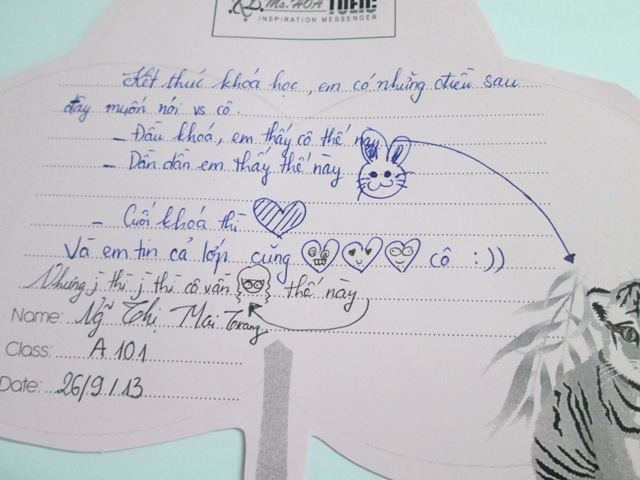 Ms. HOA TOEIC
INSPIRATION MESSENGER
Kết thúc khoá học, em có những điều sau
đây muốn nói vs cô.
– Đầu khoá, em thấy cô thế này
– Dần dần em thấy thế này
– Cuối khoá thì
Và em tin cả lớp cũng (cô :))
Nhưng j thì j thì cô vẫn thế này
Name: Ng̃ Thị Mai Trang
Class: A 101
Date: 26/9/13